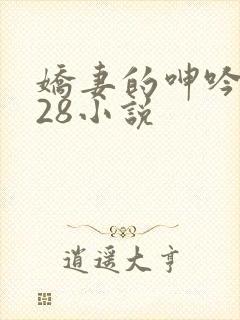 嬌妻的呻吟
28小說
逍遥大亨